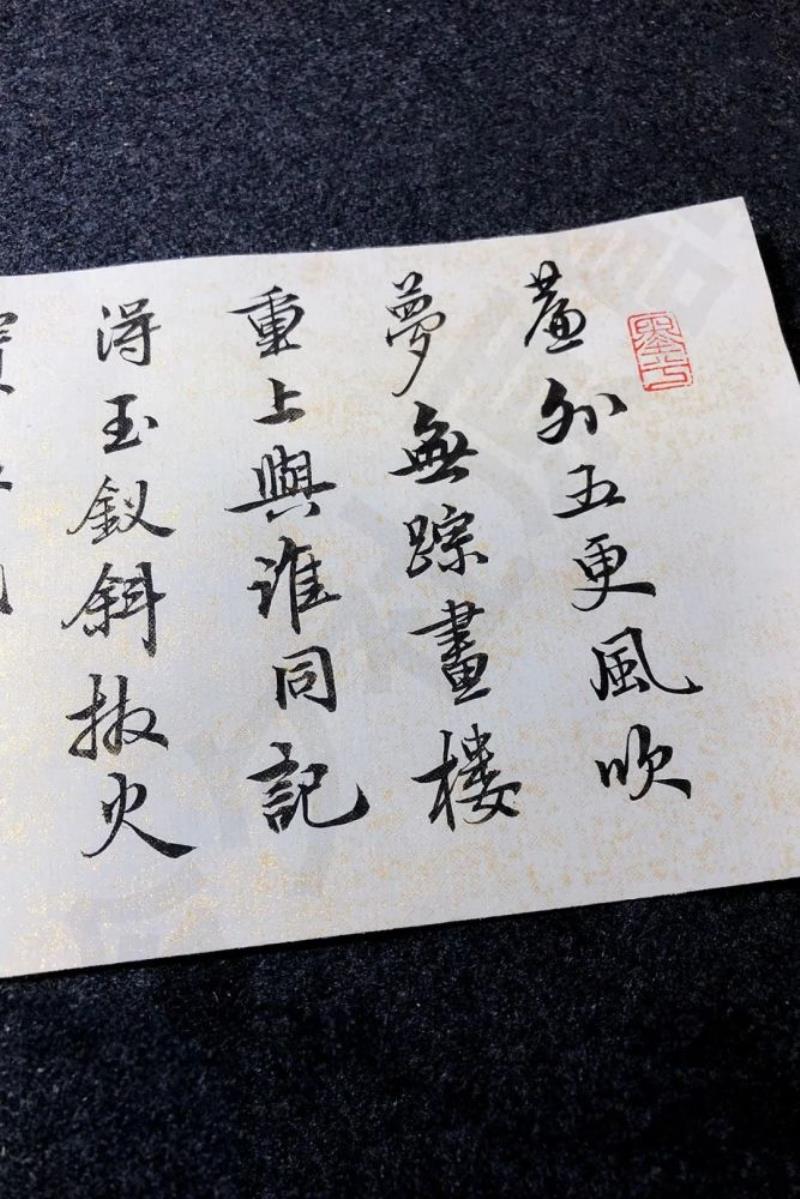 簾外五更風吹
夢無踪畫樓
重上與誰同記
得玉釵斜撥火